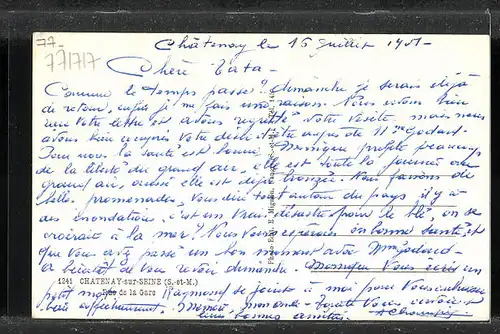 77-
77/7/7
Châtenay le 16 Juillet 1951-
Chère Tata-
Comme le temps passe! dimanche je serais déjà
de retour, enfin je me fais une raison. Nous avons bien
reçu votre lettre et avons regretté votre visite. mais nous
avons bien compris votre désir d'être auprès de Mme Godard.
Pour nous la santé est bonne, Monique profite beaucoup
de la liberté, du grand air, elle est toute la journée au
grand air, aussi elle est déjà bronzée. Nous faisons de
belles promenades, vous dire tout autour du pays il y a
des inondations, c'est un vrai désastre pour le blé, on se
croirait à la mer! Nous vous espérons en bonne santé et
que vous avez passé un bon moment avec Mme Godard-
de vous revoir dimanche. Monique vous écris un
petit mot. Raymond se joint à moi pour vous embrasser
bien affectueusement. Mémé, vous envoient
leurs bonnes amitiés.
4241 CHATENAY-sur-SEINE (S.-et-M.)
Rue de la Gare